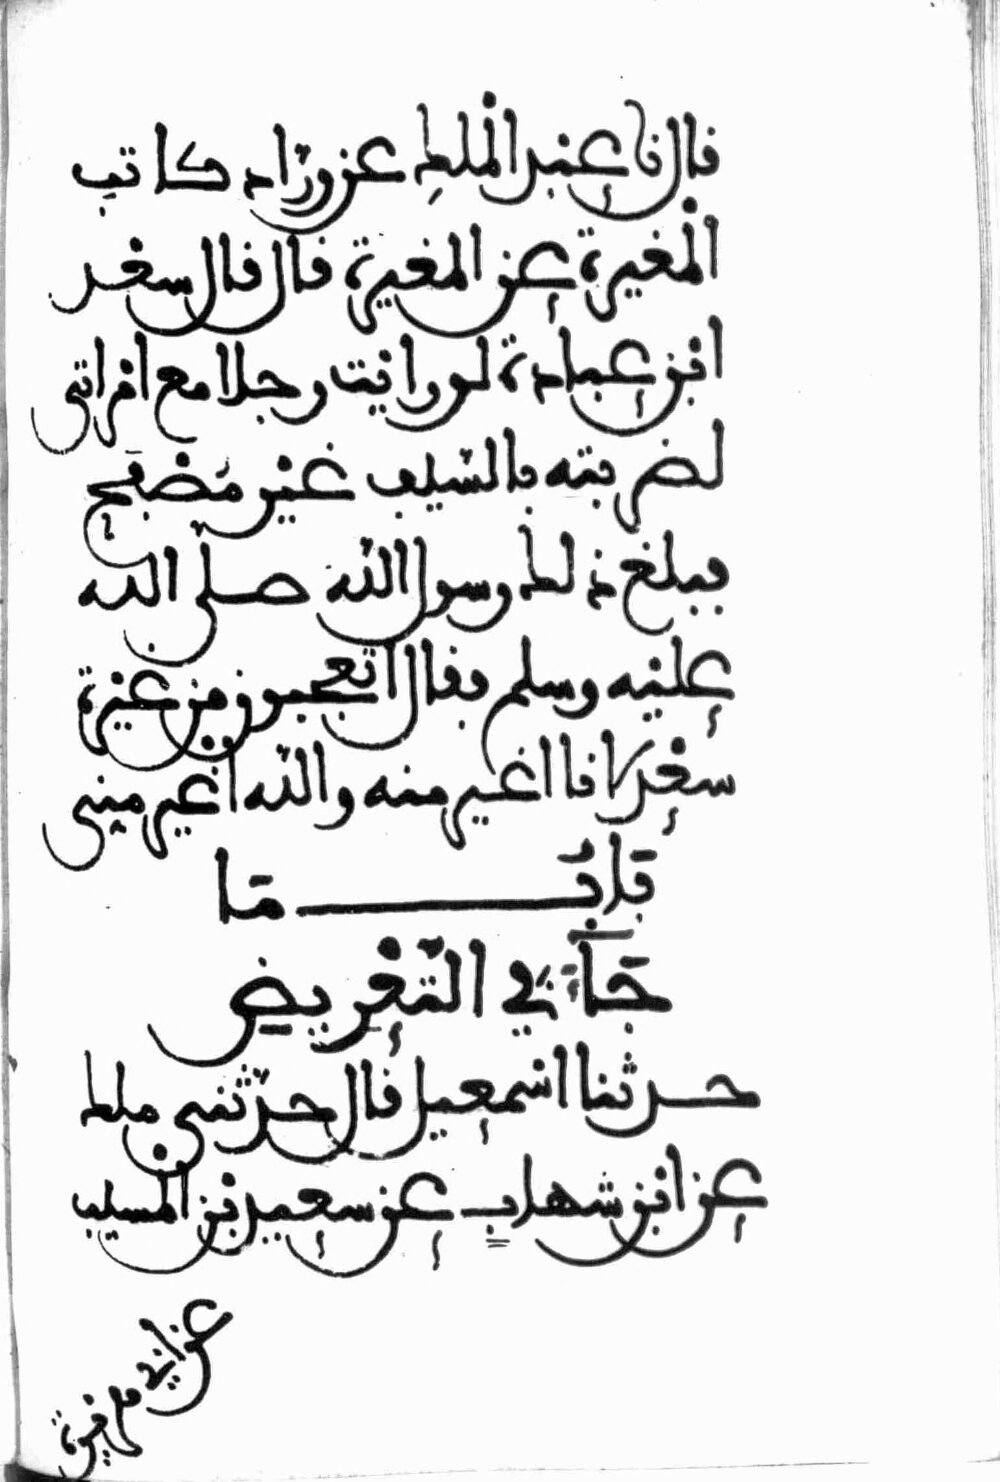 قال نا عبد الملك عن وراد كاتب
المغيرة عن المغيرة قال قال سعد
ابن عبادة لو رايت رجلا مع امراتي
لضربته بالسيف غير مُصْفَح
فبلغ ذلك رسول الله صلى الله
عليه وسلم فقال اتعجبون من غيرة
سعد لانا اغير منه والله اغير مني
بابُ ما
جآء في التعريض
حدثنا اسمعيل قال حدثني ملك
عن ابن شهاب عن سعيد بن المسيب
عن ابي هريرة